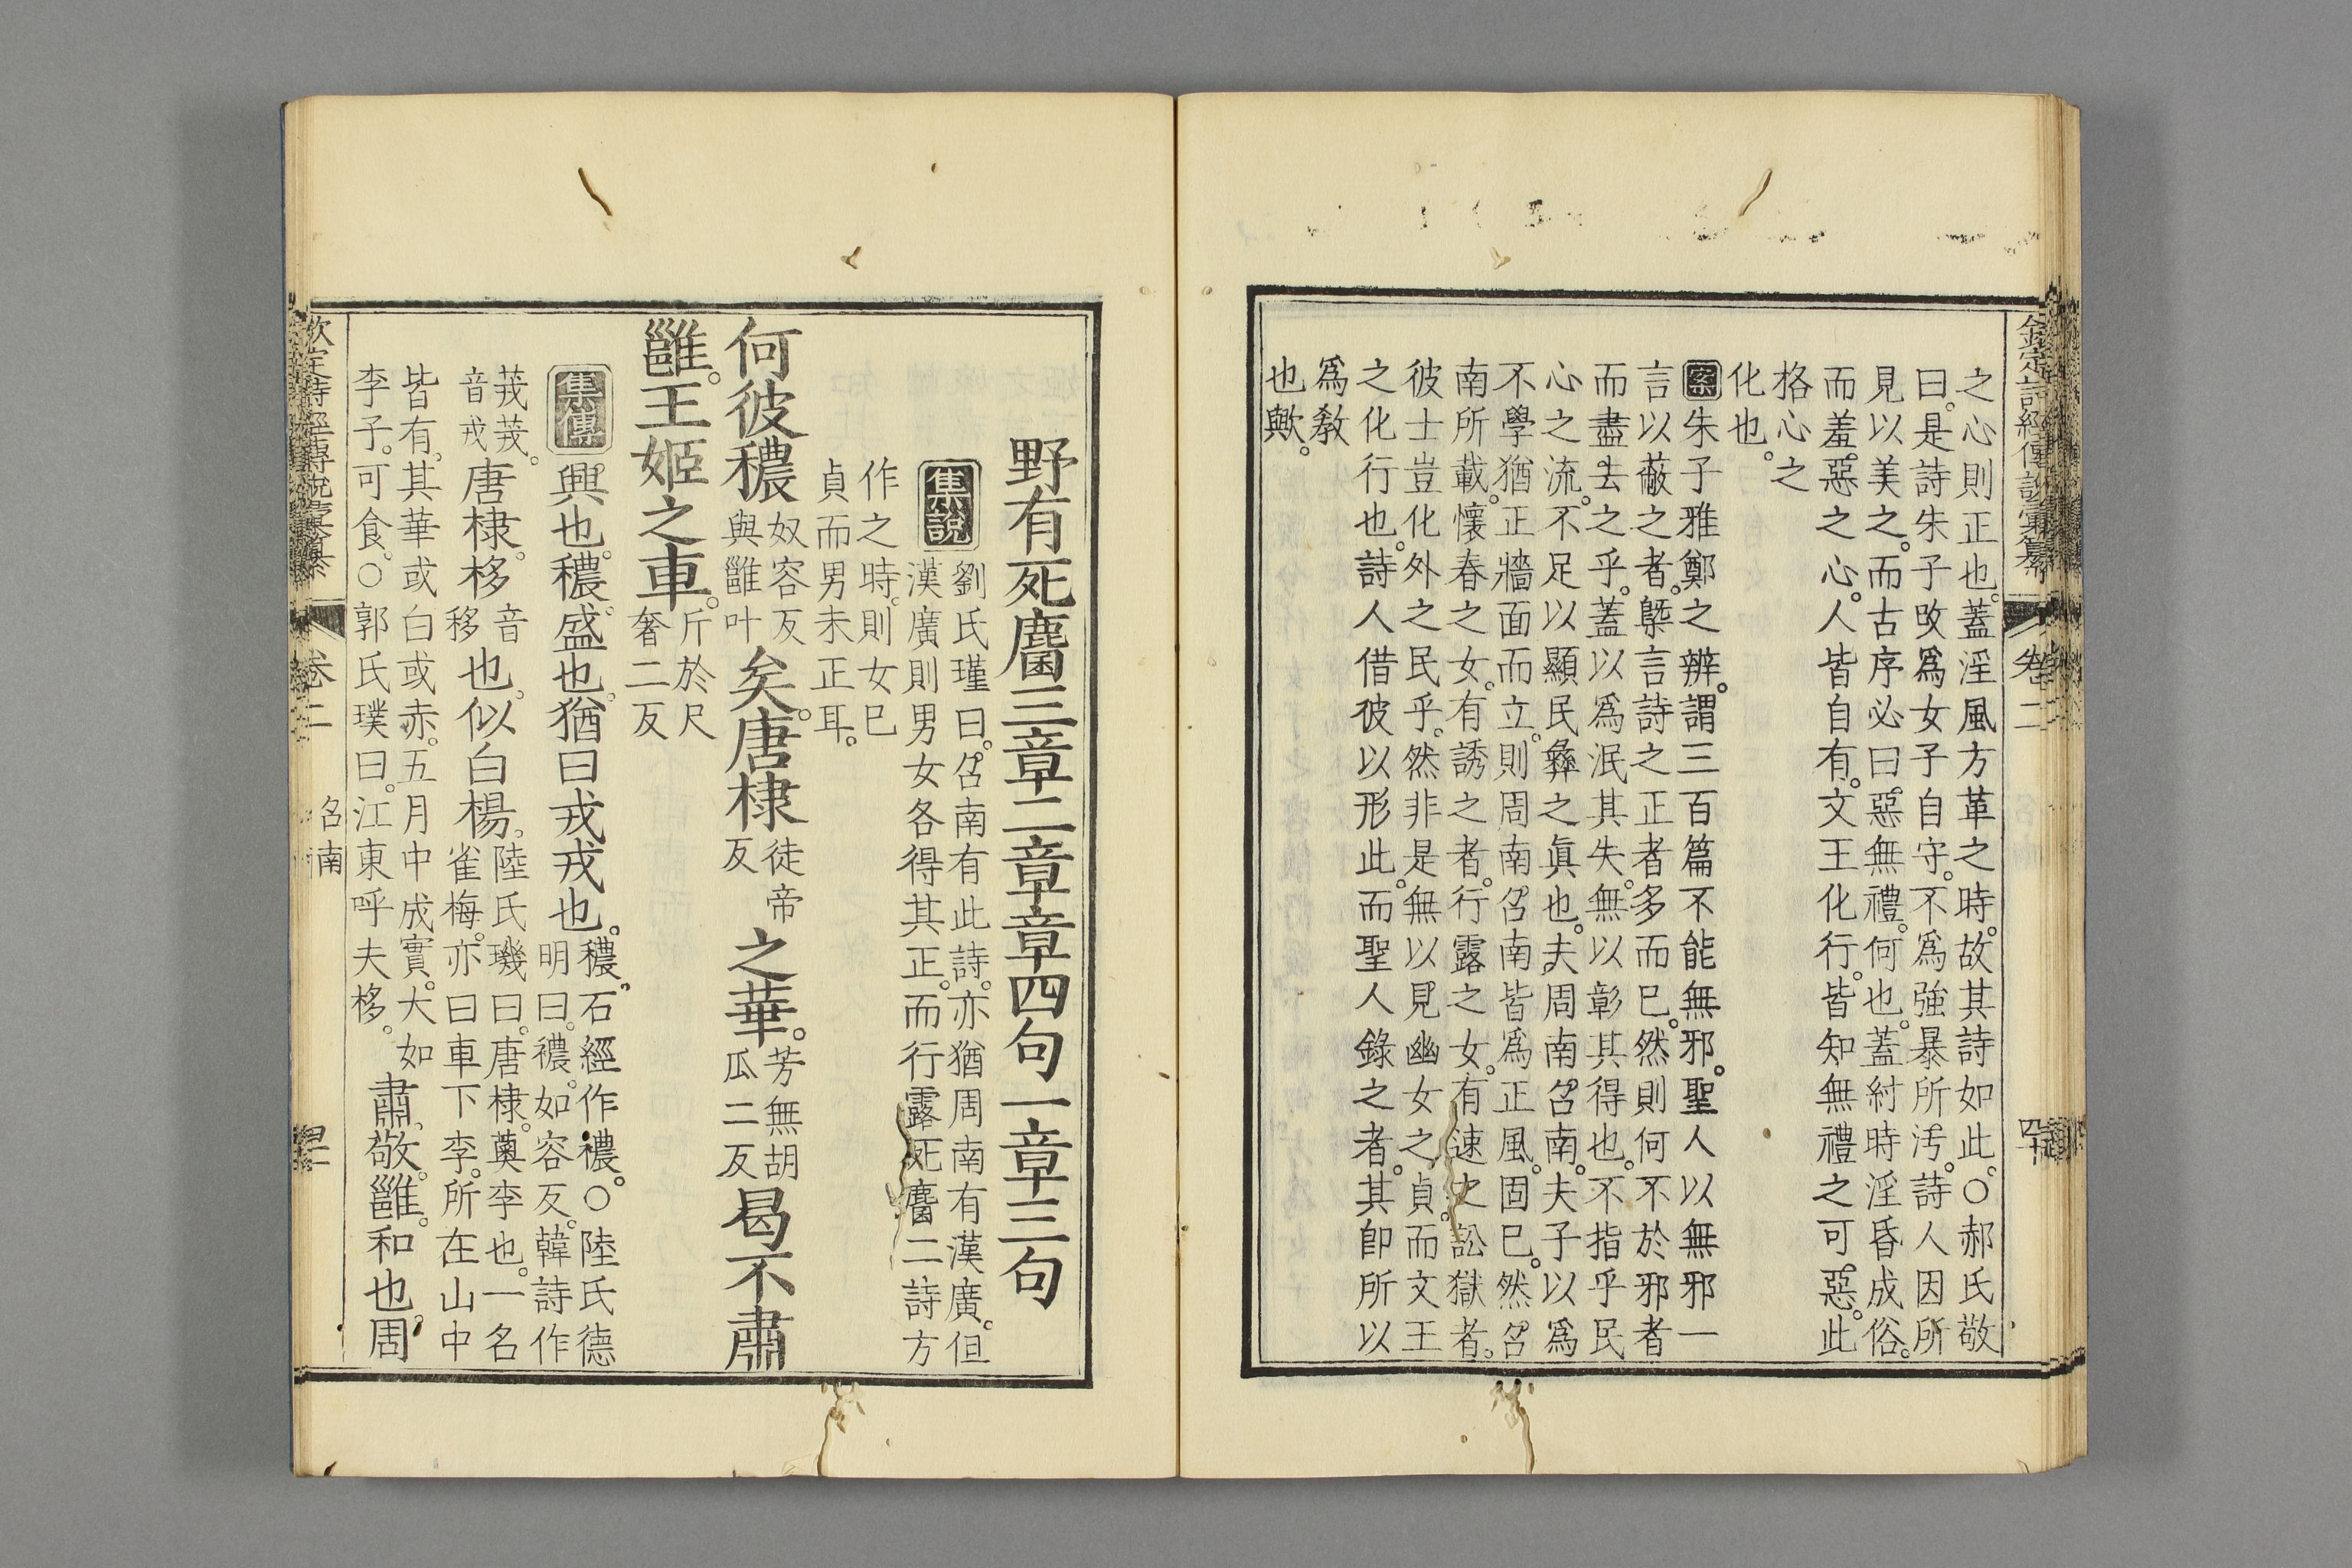 欽定詩經傳說彙纂
卷二
四十
之心則正也。蓋淫風方革之時。故其詩如此。○郝氏敬
曰。是詩朱子改爲女子自守。不爲強暴所汚。詩人因所
見以美之。而古序必曰。惡無禮。何也。蓋紂時淫昏成俗。
而羞惡之心。人皆自有。文王化行。皆知無禮之可惡。此
格心之
化也。
案朱子雅鄭之辨。謂三百篇不能無邪。聖人以無邪一
言以蔽之者。槩言詩之正者多而已。然則何不於邪者
而盡去之乎。蓋以爲泯其失。無以彰其得也。不指乎民
心之流。不足以顯民彝之眞也。夫周南召南。夫子以爲
不學猶正牆面而立。則周南召南皆爲正風。固已。然召
南所載。懷春之女。有誘之者。行露之女。有速之訟獄者。
彼士豈化外之民乎。然非是無以見幽女之貞。而文王
之化行也。詩人借彼以形此。而聖人錄之者。其卽所以
爲敎
也歟。
野有死麕三章二章章四句一章三句
集說劉氏瑾曰。召南有此詩。亦猶周南有漢廣。但
漢廣則男女各得其正。而行露死麕二詩方
作之時。則女已
貞而男未正耳。
何彼襛奴容反與雝叶矣。唐棣徒帝反之華。芳無胡瓜二反曷不肅
雝。王姬之車。斤於尺奢二反
集傳興也。襛。盛也。猶曰戎戎也。襛。石經作禯。○陸氏德明曰。襛。如容反。韓詩作
茙茙。音戎唐棣。栘音移也。似白楊。陸氏璣曰。唐棣。薁李也。一名雀梅。亦曰車下李。所在山中
皆有。其華或白或赤。五月中成實。大如李子。可食。○郭氏璞曰。江東呼夫栘。肅。敬。雝。和也。周
欽定詩經傳說彙纂
卷二
召南
四十一